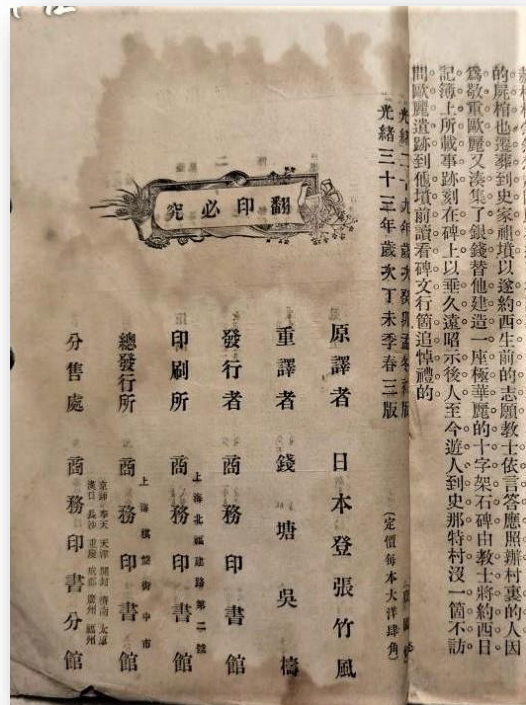 的屍棺也遷葬到史家祖墳以遂約西生前的志願教士依言答應照辦村裏的人因
爲敬重歐麗又湊集了銀錢替他建造一座極華麗的十字架石碑由教士將約西日
記簿上所載事跡刻在碑上以垂久遠昭示後人至今遊人到史那特村沒一箇不訪
問歐麗遺跡到他墳前讀看碑文行箇追悼禮的
光緒二十九年歲次癸卯孟冬初版
光緒三十三年歲次丁未季春三版
(定價每本大洋肆角)
翻印必究
原譯者 日本登張竹風
重譯者 錢塘吳檮
發行者 商務印書館
上海北福建路第二號
印刷所 商務印書館
上海棋盤街中市
總發行所 商務印書館
京師 奉天 天津 開封 濟南 太原
漢口 長沙 重慶 成都 廣州 福州
分售處 商務印書分館